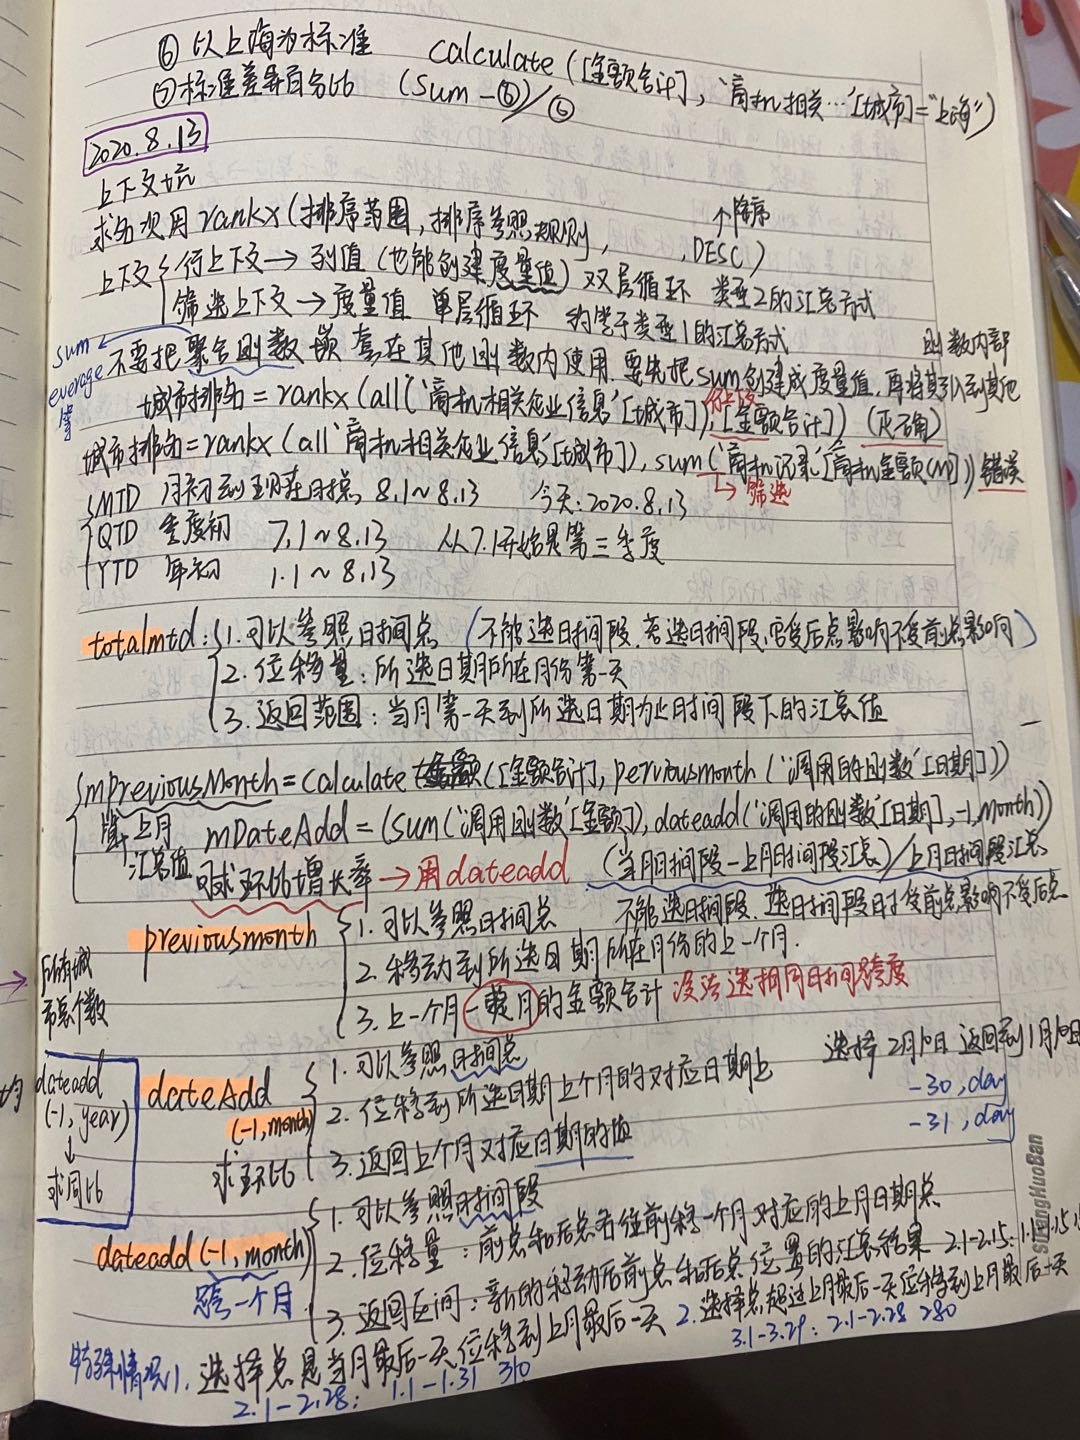 ⑥ 以上海为标准 calculate([金额合计],‘商机相关…’[城市]="上海")
⑦标准差异百分比 (sum-⑥)/⑥
2020.8.13
上下文
求名次用rankx(排序范围,排序参照规则, ,DESC)
↑降序
上下文{行上下文→列值(也能创建度量值) 双层循环 类型2的汇总方式
筛选上下文→度量值 单层循环 约等于类型1的汇总方式
sum
average
等
不要把聚合函数嵌套在其他函数内使用.要先把sum创建成度量值,再将其引入到其他
函数内部
城市排名=rankx(all(‘商机相关企业信息’[城市]),[金额合计]) (正确)
城市排名=rankx(all‘商机相关企业信息’[城市]),sum(‘商机记录’[商机金额(M)]) 错误
→筛选
MTD 月初到现在时点 8.1~8.13 今天:2020.8.13
QTD 季度初 7.1~8.13 从7.1开始是第三季度
YTD 年初 1.1~8.13
totalmtd:{1.可以参照时间点 (不能选时间段.若选时间段,它受后点影响不受前点影响)
2.位移量:所选日期所在月份第一天
3.返回范围:当月第一天到所选日期为止时间段下的汇总值
mpreviousMonth=calculate([金额合计],perviousmonth(‘调用的函数’[日期]))
上月
汇总值
mDateAdd=(sum(‘调用函数’[金额]),dateadd(‘调用的函数’[日期],-1,month))
可求环比增长率→用dateadd (当月时间段-上月时间段汇总)/上月时间段汇总
previousmonth {1.可以参照时间点 不能选时间段.选时间段时受前点影响不受后点
2.移动到所选日期所在月份的上一个月.
3.上一个月一整月的金额合计 没法选相同时间跨度
→
所有城
市总个数
dateadd
(-1,year)
↓
求同比
dateAdd
(-1,month)
求环比
1.可以参照时间点 选择2月10日 返回到1月10日
2.位移到所选日期上个月的对应日期上 -30,day
3.返回上个月对应日期的值 -31,day
dateadd(-1,month)
跨一个月
1.可以参照时间段
2.位移量:前点和后点各往前移一个月对应的上月日期点
3.返回区间:新的移动后前点和后点位置的汇总结果 2.1-2.15:1.1-1.15
特殊情况1.选择点是当月最后一天位移到上月最后一天 2.选择点超过上月最后一天位移到上月最后一天
2.1-2.28: 1.1-1.31 310 3.1-3.29: 2.1-2.28 280
shangHuoBan